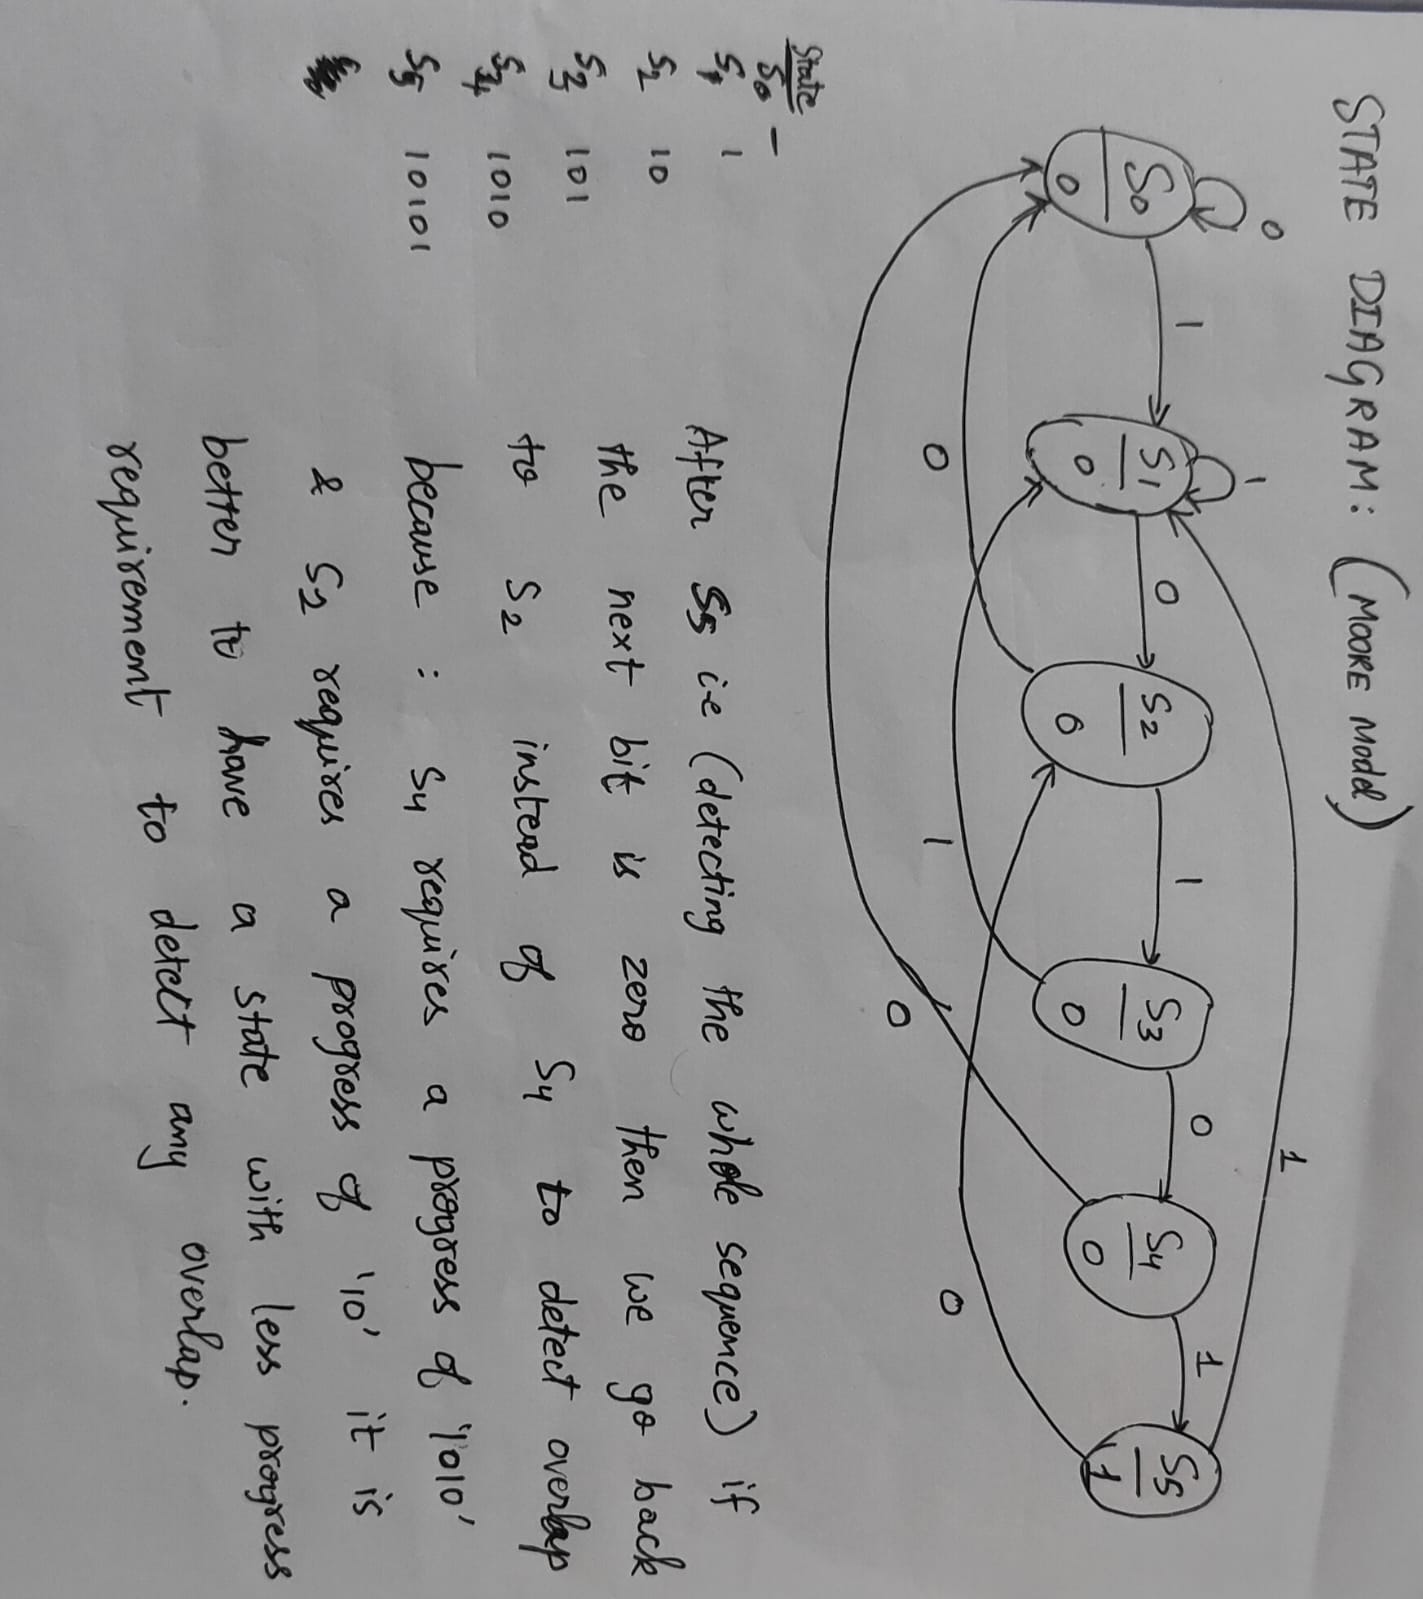 STATE DIAGRAM: (MOORE Model)
0 1 1
1 0 1 0 1
S0 S1 S2 S3 S4 S5
0 0 0 0 0 1
0 1 0 0
State
S0 –
S1 1
S2 10
S3 101
S4 1010
S5 10101
After S5 i.e (detecting the whole sequence) if
the next bit is zero then we go back
to S2 instead of S4 to detect overlap
because : S4 requires a progress of '1010'
& S2 requires a progress of '10' it is
better to have a state with less progress
requirement to detect any overlap.